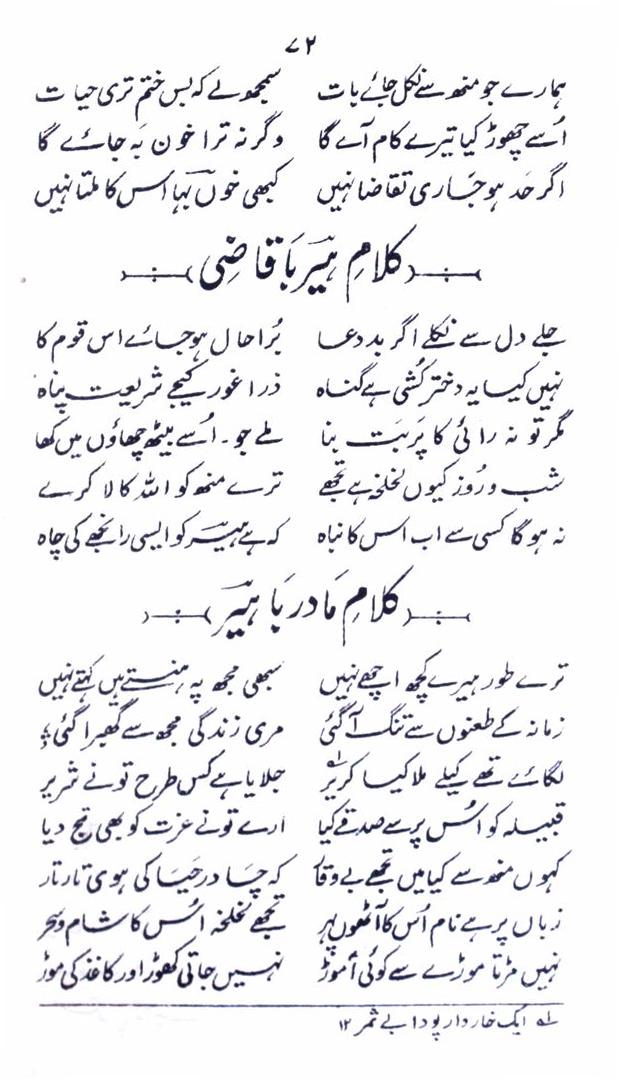 ۷۲
ہمارے جو منھ سے نکل جائے بات سمجھ لے کہ بس ختم تری حیات
اُسے چھوڑ کیا تیرے کام آے گا وگرنہ ترا خون بہ جائے گا
اگر حَد ہو جاری تقاضا نہیں کبھی خوں بہا اس کا ملتا نہیں
کلامِ ہیر بَا قاضِی
جلے دل سے نکلے اگر بددعا بُرا حال ہو جائے اس قوم کا
نہیں کیا یہ دختر کُشی ہے گناہ ذرا غور کیجے شریعت پناہ
مگر تو نہ رائی کا پَربَت بنا ملے جو۔ اُسے بیٹھ چھاؤں میں کھا
شب و رُوز کیوں لخلخہ ہے تجھے ترے منھ کو اللہ کالا کرے
نہ ہوگا کسی سے اب اس کا نباہ کہ ہے ہیر کو ایسی رانجھے کی چاہ
کلامِ مَادر بَا ہیر
ترے طور ہیرے کچھ اچھے نہیں سبھی مجھ پہ ہنستے ہیں کہتے نہیں
زمانہ کے طعنوں سے تنگ آ گئی مری زندگی مجھ سے گھبرا گئی
لگائے تھے کیلے ملا کیا کریر جلایا ہے کس طرح تو نے شریر
قبیلہ کو اُس پر سے صدقے کیا ارے تو نے عزت کو بھی تج دیا
کہوں منھ سے کیا میں تجھے بے وقار کہ چَادر حَیَا کی ہوی تار تار
زباں پر ہے نام اُس کا آٹھوں پہر تجھے لخلخہ اُس کا شام و سحر
نہیں مڑتا موڑے سے کوئی اَموڑ نہیں جاتی کھوڑ اور کاغذ کی موڑ
لہ ایک خاردار پودا بے ثمر ۱۲